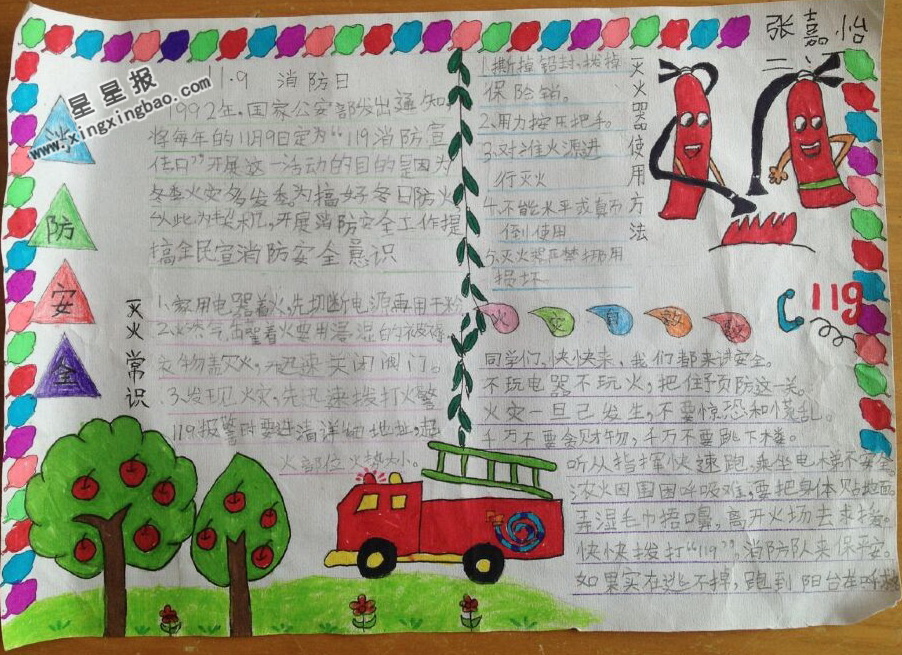 张嘉怡
二、
星星报
www.xingxingbao.com
消防安全
11·9 消防日
1992年,国家公安部发出通知,
将每年的11月9日定为“119消防宣
传日”开展这一活动的目的是因为
冬季火灾多发季为搞好冬日防火
以此为契机,开展消防安全工作提
搞全民宣消防安全意识
灭火常识
1、家用电器着火,先切断电源再用干粉
2.火
衣物 灭火,迅速关闭阀门。
3.发现火灾,先迅速拨打火警
119.报警时要讲清详细地址,起
火部位火势大小。
灭火器使用方法
1.撕掉铅封、拔掉
保险销。
2、用力按压把手。
3.对准火源进
行灭火
4.不能水平或真不
倒使用
5.灭火器严禁挪用
损坏
119
火灾自救
同学们,快快来,我们都来讲安全。
不玩电器不玩火,把住预防这一关。
火灾一旦己发生,不要惊恐和慌乱。
千万不要贪财物,千万不要跳下楼。
听从指挥快速跑,乘坐电梯不安全
浓火因围困呼吸难,要把身体贴地面。
弄湿毛巾捂嘴鼻,离开火场去求援。
快快拨打“119”消防队来保平安。
如果实在逃不掉,跑到阳台去呼救